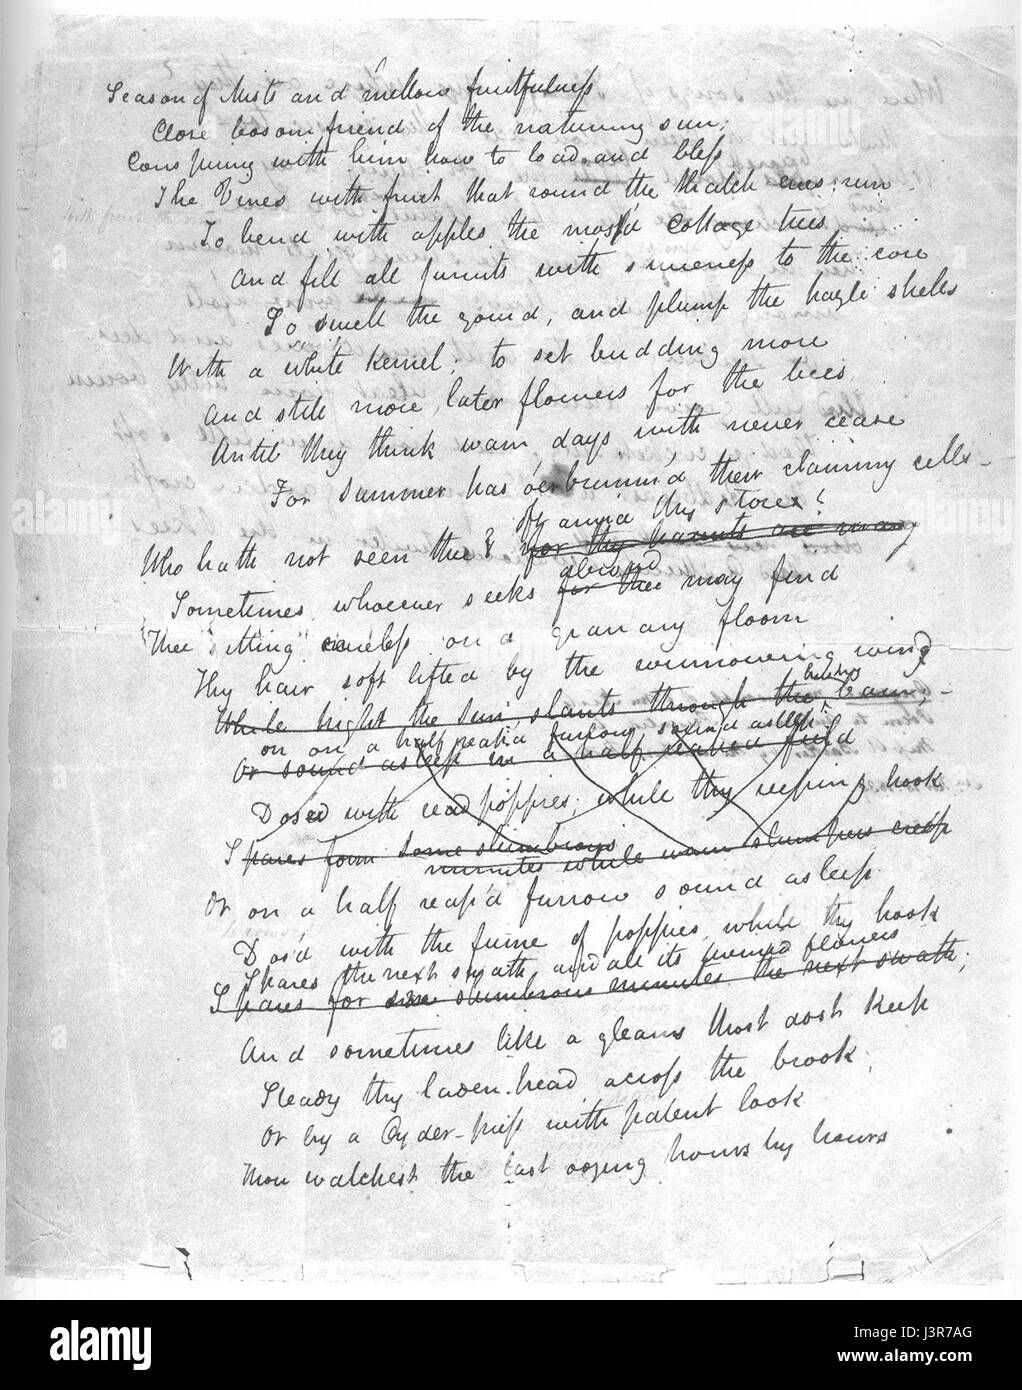 Season of Mists and mellow fruitfulness
Close bosom friend of the naturring sun;
Conspiring with him how to load and bless
The Vines with fruit that round the thatch eves run
To bend with apples the moss'd Cottage trees
And fill all furuits with sweeness to the core
To swell the gourd, and plump the hazle shells
With a white kernel; to set budding more
And still more later flowers for the bees
Until they think warm days with never cease
For Summer has o'erbrimm'd their clammy cells—
oft amid thy stores?
Who hath not seen thee? for thy haunts are many
abroad
Sometimes whoever seeks for thee may find
Thee sitting careless on a granary floorr
Thy hair soft lifted by the winnowing wind
While bright the Sun slants through the barn,—
on on a half reap'd furrow sound asleep
Or sound asleep in a half reaped field
Dosed with read poppies; while thy reeping hook
Spares form some slumbrous
minutes while warm slumpers creep
Or on a half reap'd furrow sound asleep
Dos'd with the fume of poppies, while thy hook
Spares the next swath and all its twined flowers
Spares for some slumbrous minutes the next swath;
And sometimes like a gleans thost dost keep
Steady thy laden head across the brook;
Or by a Cyder-press with patent look
Thou watchest the last oozing hours by hours
alamy
J3R7AG
www.alamy.com